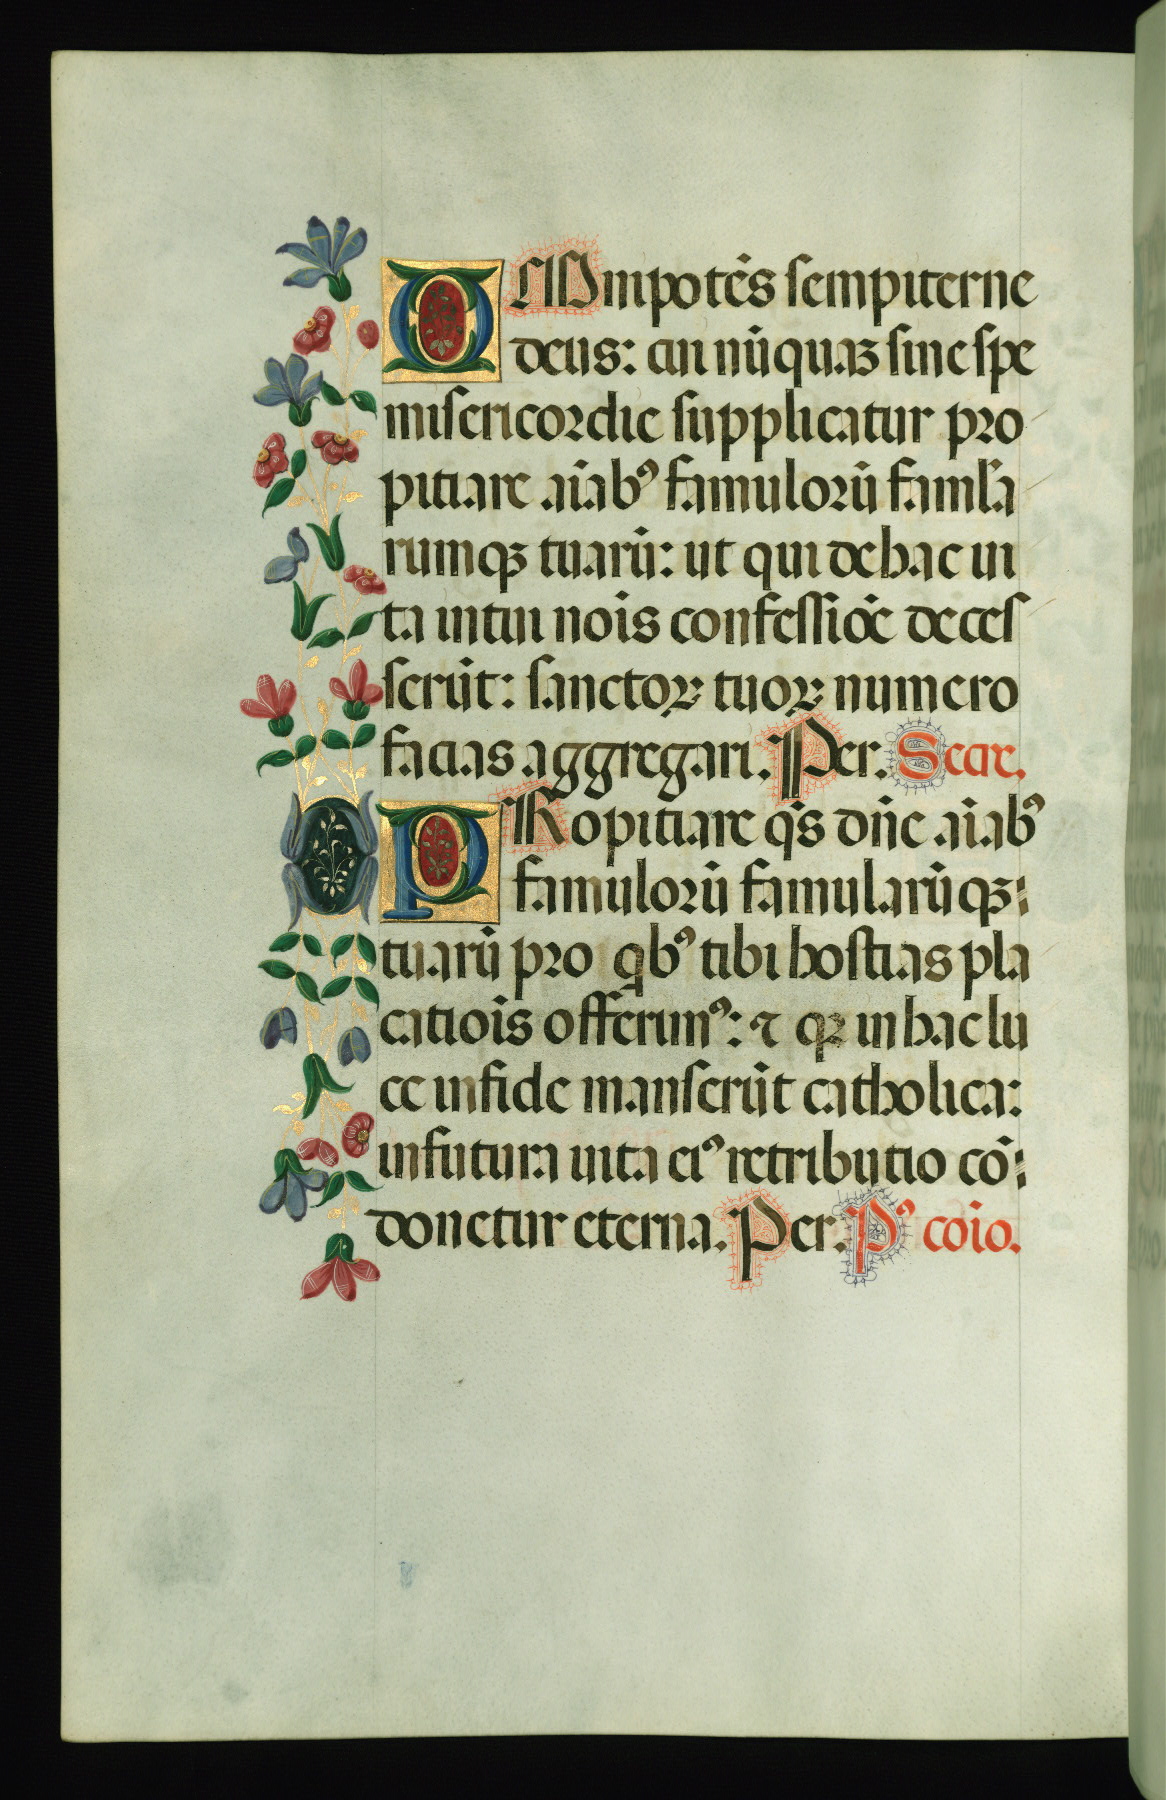 OMnipotēs sempiterne
deus: cui nūquaꝫ sine spe
misericordie supplicatur pro
pitiare aīabꝰ famulorū faml̄a
rumqꝫ tuarū: ut qui de hac ui
ta in tui noīs confessiōe deces
serūt: sanctoꝝ tuoꝝ numero
facias aggregari. Per. Secre.
PRopitiare qs̄ dn̄e aīabꝰ
famulorū famularūqꝫ
tuarū pro qbꝰ tibi hostias pla
catiōis offerimꝰ: ⁊ qꝛ in hac lu
ce in fide manserūt catholica:
in futura uita eiꝰ retributio cō
donetur eterna. Per. Pꝰ coīo.